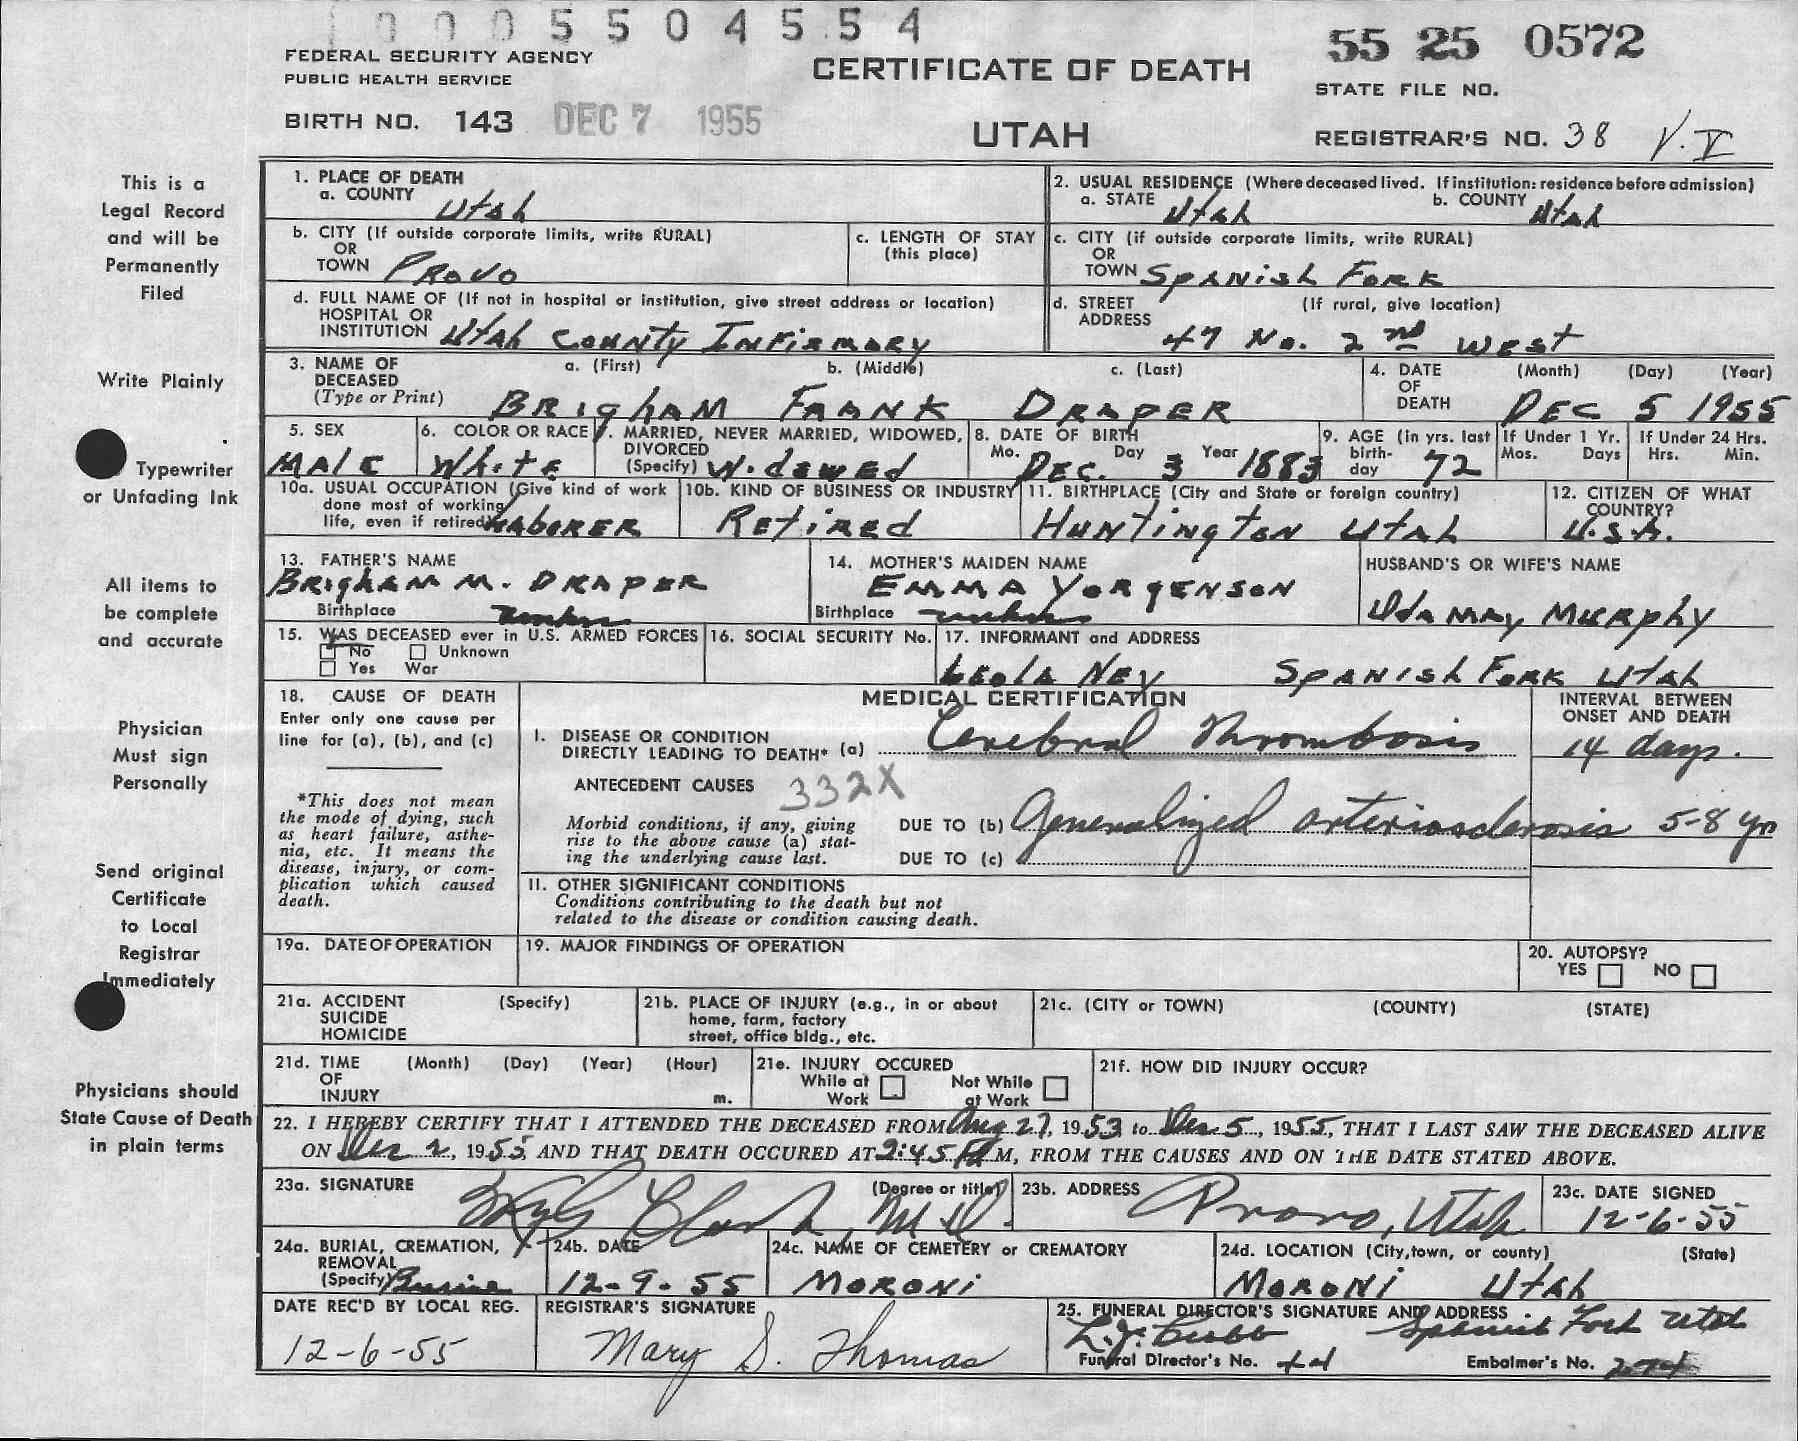 0 0 0 5 5 0 4 5 5 4
55 25 0572
FEDERAL SECURITY AGENCY
PUBLIC HEALTH SERVICE
CERTIFICATE OF DEATH
STATE FILE NO.
BIRTH NO. 143 DEC 7 1955
UTAH
REGISTRAR'S NO. 38 V.V
This is a
Legal Record
and will be
Permanently
Filed
Write Plainly
Typewriter
or Unfading Ink
All items to
be complete
and accurate
Physician
Must sign
Personally
Send original
Certificate
to Local
Registrar
Immediately
Physicians should
State Cause of Death
in plain terms
1. PLACE OF DEATH
a. COUNTY Utah
2. USUAL RESIDENCE (Where deceased lived. If institution: residence before admission)
a. STATE Utah b. COUNTY Utah
b. CITY (If outside corporate limits, write RURAL)
OR
TOWN Provo
c. LENGTH OF STAY
(this place)
c. CITY (if outside corporate limits, write RURAL)
OR
TOWN Spanish Fork
d. FULL NAME OF (If not in hospital or institution, give street address or location)
HOSPITAL OR
INSTITUTION Utah County Infirmary
d. STREET (If rural, give location)
ADDRESS 47 No. 2nd West
3. NAME OF a. (First) b. (Middle) c. (Last)
DECEASED
(Type or Print) Brigham Frank Draper
4. DATE (Month) (Day) (Year)
OF
DEATH Dec 5 1955
5. SEX
Male
6. COLOR OR RACE
White
7. MARRIED, NEVER MARRIED, WIDOWED,
DIVORCED
(Specify) Widowed
8. DATE OF BIRTH
Mo. Day Year
Dec. 3 1883
9. AGE (in yrs. last
birth-
day 72
If Under 1 Yr.
Mos. Days
If Under 24 Hrs.
Hrs. Min.
10a. USUAL OCCUPATION (Give kind of work
done most of working
life, even if retired) Laborer
10b. KIND OF BUSINESS OR INDUSTRY
Retired
11. BIRTHPLACE (City and State or foreign country)
Huntington Utah
12. CITIZEN OF WHAT
COUNTRY?
U.S.A.
13. FATHER'S NAME
Brigham M. Draper
Birthplace
14. MOTHER'S MAIDEN NAME
Emma Yorgenson
Birthplace
HUSBAND'S OR WIFE'S NAME
Ida May Murphy
15. WAS DECEASED ever in U.S. ARMED FORCES
No Unknown
Yes War
16. SOCIAL SECURITY No.
17. INFORMANT and ADDRESS
Leola Ney Spanish Fork Utah
18. CAUSE OF DEATH
Enter only one cause per
line for (a), (b), and (c)
*This does not mean
the mode of dying, such
as heart failure, asthe-
nia, etc. It means the
disease, injury, or com-
plication which caused
death.
MEDICAL CERTIFICATION
INTERVAL BETWEEN
ONSET AND DEATH
I. DISEASE OR CONDITION
DIRECTLY LEADING TO DEATH* (a) Cerebral Thrombosis 14 days.
ANTECEDENT CAUSES 332X
Morbid conditions, if any, giving
rise to the above cause (a) stat-
ing the underlying cause last.
DUE TO (b) Generalized arteriosclerosis 5-8 yrs
DUE TO (c)
II. OTHER SIGNIFICANT CONDITIONS
Conditions contributing to the death but not
related to the disease or condition causing death.
19a. DATE OF OPERATION
19. MAJOR FINDINGS OF OPERATION
20. AUTOPSY?
YES NO
21a. ACCIDENT (Specify)
SUICIDE
HOMICIDE
21b. PLACE OF INJURY (e.g., in or about
home, farm, factory
street, office bldg., etc.
21c. (CITY or TOWN) (COUNTY) (STATE)
21d. TIME (Month) (Day) (Year) (Hour)
OF
INJURY m.
21e. INJURY OCCURED
While at Not While
Work at Work
21f. HOW DID INJURY OCCUR?
22. I HEREBY CERTIFY THAT I ATTENDED THE DECEASED FROM Aug 27, 1953 to Dec 5, 1955, THAT I LAST SAW THE DECEASED ALIVE
ON Dec 2, 1955 AND THAT DEATH OCCURED AT 2:45 P M, FROM THE CAUSES AND ON THE DATE STATED ABOVE.
23a. SIGNATURE (Degree or title)
Clark, M.D.
23b. ADDRESS
Provo, Utah
23c. DATE SIGNED
12-6-55
24a. BURIAL, CREMATION,
REMOVAL
(Specify)
24b. DATE
12-9-55
24c. NAME OF CEMETERY or CREMATORY
Moroni
24d. LOCATION (City, town, or county) (State)
Moroni Utah
DATE REC'D BY LOCAL REG.
12-6-55
REGISTRAR'S SIGNATURE
Mary S. Thomas
25. FUNERAL DIRECTOR'S SIGNATURE AND ADDRESS
Spanish Fork Utah
Funeral Director's No. Embalmer's No.